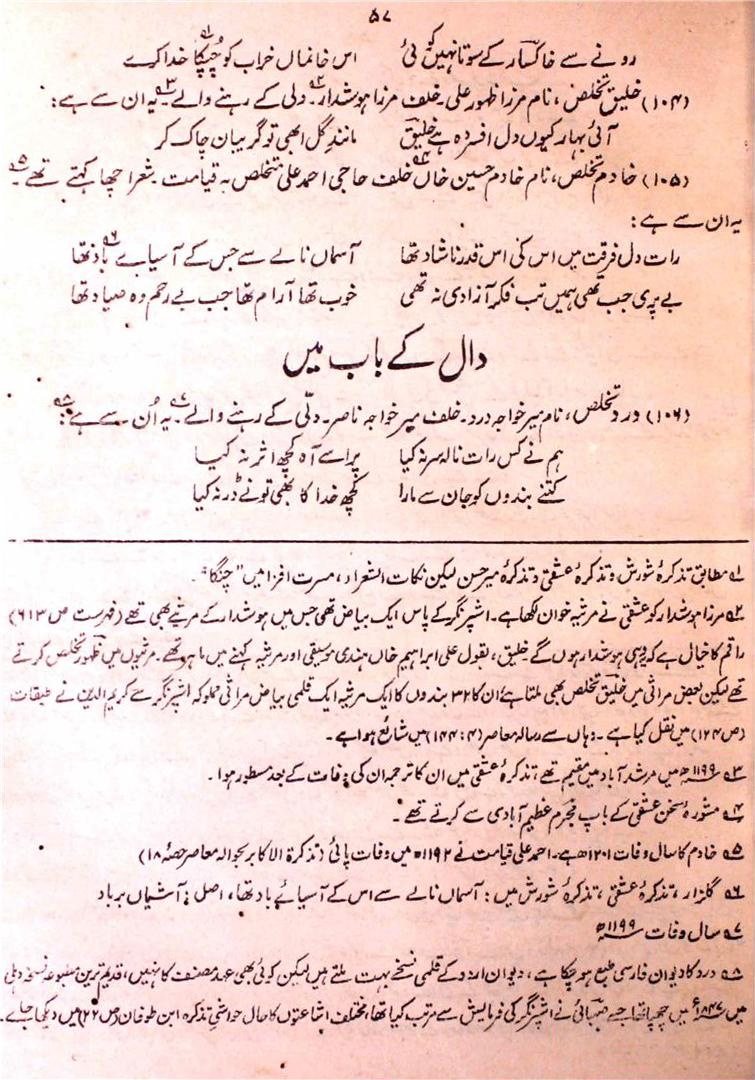 ۵۷
رونے سے خاکسار کے سوتا نہیں کوئی اس خانماں خراب کو چپکا خدا کرے ۱؎
(۱۰۴) خلیق تخلص، نام مرزا ظہور علی۔ خلف مرزا ہوشدار ۲؎۔ دلی کے رہنے والے ۳؎۔ یہ ان سے ہے:
آئی بہار کیوں دل افسردہ ہے خلیق مانندِ گل ابھی تو گریبان چاک کر
(۱۰۵) خادم تخلص، نام خادم حسین خاں ۴؎ خلف حاجی احمد علی متخلص بہ قیامت۔ شعر اچھا کہتے تھے ۵؎۔
یہ ان سے ہے:
رات دل فرقت میں اس کی اس قدر ناشاد تھا آسماں نالے سے جس کے آسیاے باد تھا ۶؎
بے پری جب تھی ہمیں تب فکر آزادی نہ تھی خوب تھا آرام تھا جب بے رحم وہ صیاد تھا
دال کے باب میں
(۱۰۶) درد تخلص، نام میر خواجہ درد۔ خلف میر خواجہ ناصر۔ دلّی کے رہنے والے ۷؎۔ یہ اُن سے ہے ۸؎:
ہم نے کس رات نالہ سر نہ کیا پر اسے آہ کچھ اثر نہ کیا
کتنے بندوں کو جان سے مارا کچھ خدا کا بھی تو نے ڈر نہ کیا
۱؎ مطابق تذکرۂ شورش و تذکرۂ عشقی و تذکرۂ میر حسن لیکن نکات الشعراء، مسرت افزا میں "چنگا"۔
۲؎ مرزا ہوشدار کو عشقی نے مرثیہ خوان لکھا ہے۔ اشپرنگر کے پاس ایک بیاض تھی جس میں ہوشدار کے مرثیے بھی تھے (فہرست ص ۶۱۳)
راقم کا خیال ہے کہ یہی ہوشدار ہوں گے خلیق، بقول علی ابراہیم خاں ہندی موسیقی اور مرثیہ کہنے میں ماہر تھے۔ مرثیوں میں ظہور تخلص کرتے
تھے لیکن بعض مراثی میں خلیق تخلص بھی ملتا ہے ان کا ۳۲ بندوں کا ایک مرثیہ ایک قلمی بیاض مراثی مملوکہ اشپرنگر سے کریم الدین نے طبقات
(ص ۱۲۴) میں نقل کیا ہے۔ وہاں سے رسالہ معاصر (۴: ۱۴۴) میں شائع ہوا ہے۔
۳؎ ۱۱۹۹ھ میں مرشدآباد میں مقیم تھے، تذکرۂ عشقی میں ان کا ترجمہ ان کی وفات کے بعد مسطور ہوا۔
۴؎ مشورۂ سخن عشقی کے باپ مجرم عظیم آبادی سے کرتے تھے۔
۵؎ خادم کا سال وفات ۱۲۰۱ھ ہے۔ احمد علی قیامت نے ۱۱۹۲ھ میں وفات پائی (تذکرۃ الاکابر بحوالہ معاصر حصہ ۱۸)
۶؎ گلزار، تذکرۂ عشقی، تذکرۂ شورش میں: آسماں نالے سے اس کے آسیائے باد تھا، اصل: آشیاں برباد
۷؎ سال وفات ۱۱۹۹ھ
۸؎ درد کا دیوان فارسی طبع ہو چکا ہے، دیوان اردو کے قلمی نسخے بہت ملتے ہیں لیکن کوئی بھی عہد مصنف کا نہیں، قدیم ترین مطبوعہ نسخہ دہلی
میں ۱۸۴۷ء میں چھپا تھا جسے صہبائی نے اشپرنگر کی فرمایش سے مرتب کیا تھا، مختلف اشاعتوں کا حال حواشی تذکرہ ابن طوفان (ص ۲۲) میں دیکھا جائے۔